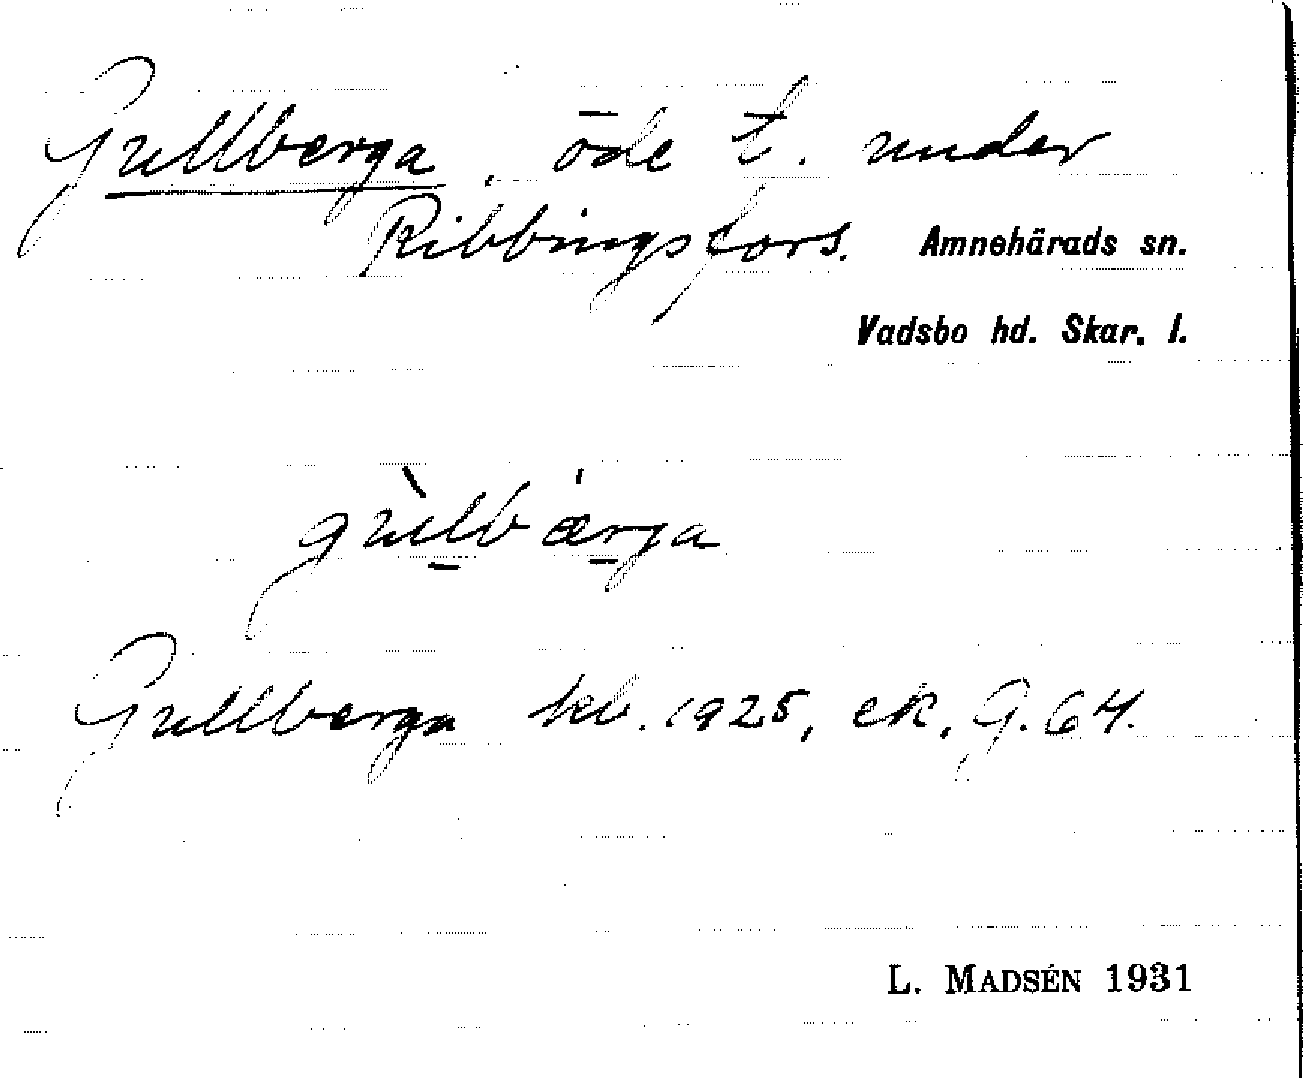 Gullberga, öde t. under
Ribbingsfors.
Amnehärads sn.
Vadsbo hd. Skar. l.
gùlbǽrga
Gullberga kb. 1925, ek. G. 64.
L. MADSÉN 1931